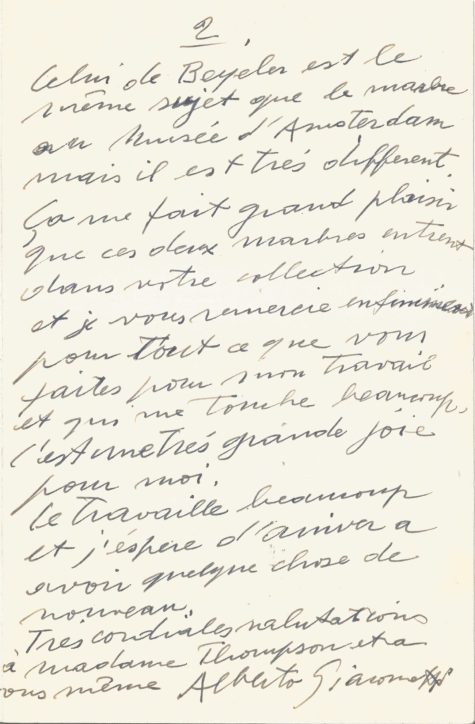 2.
Celui de Beyeler est le
même sujet que le marbre
au Musée d'Amsterdam
mais il est très different.
Ça me fait grand plaisir
que ces deux marbres entrent
dans votre collection
et je vous remercie infiniment
pour tout ce que vous
faites pour mon travail
et qui me touche beaucoup,
c'est une très grande joie
pour moi.
Je travaille beaucoup
et j'éspère d'arriver a
avoir quelque chose de
nouveau.
Très cordiales salutations
à madame Thompson et a
vous même Alberto Giacometti